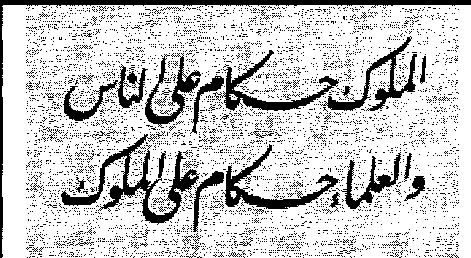 الملوك حكام على الناس
والعلماء حكام على الملوك